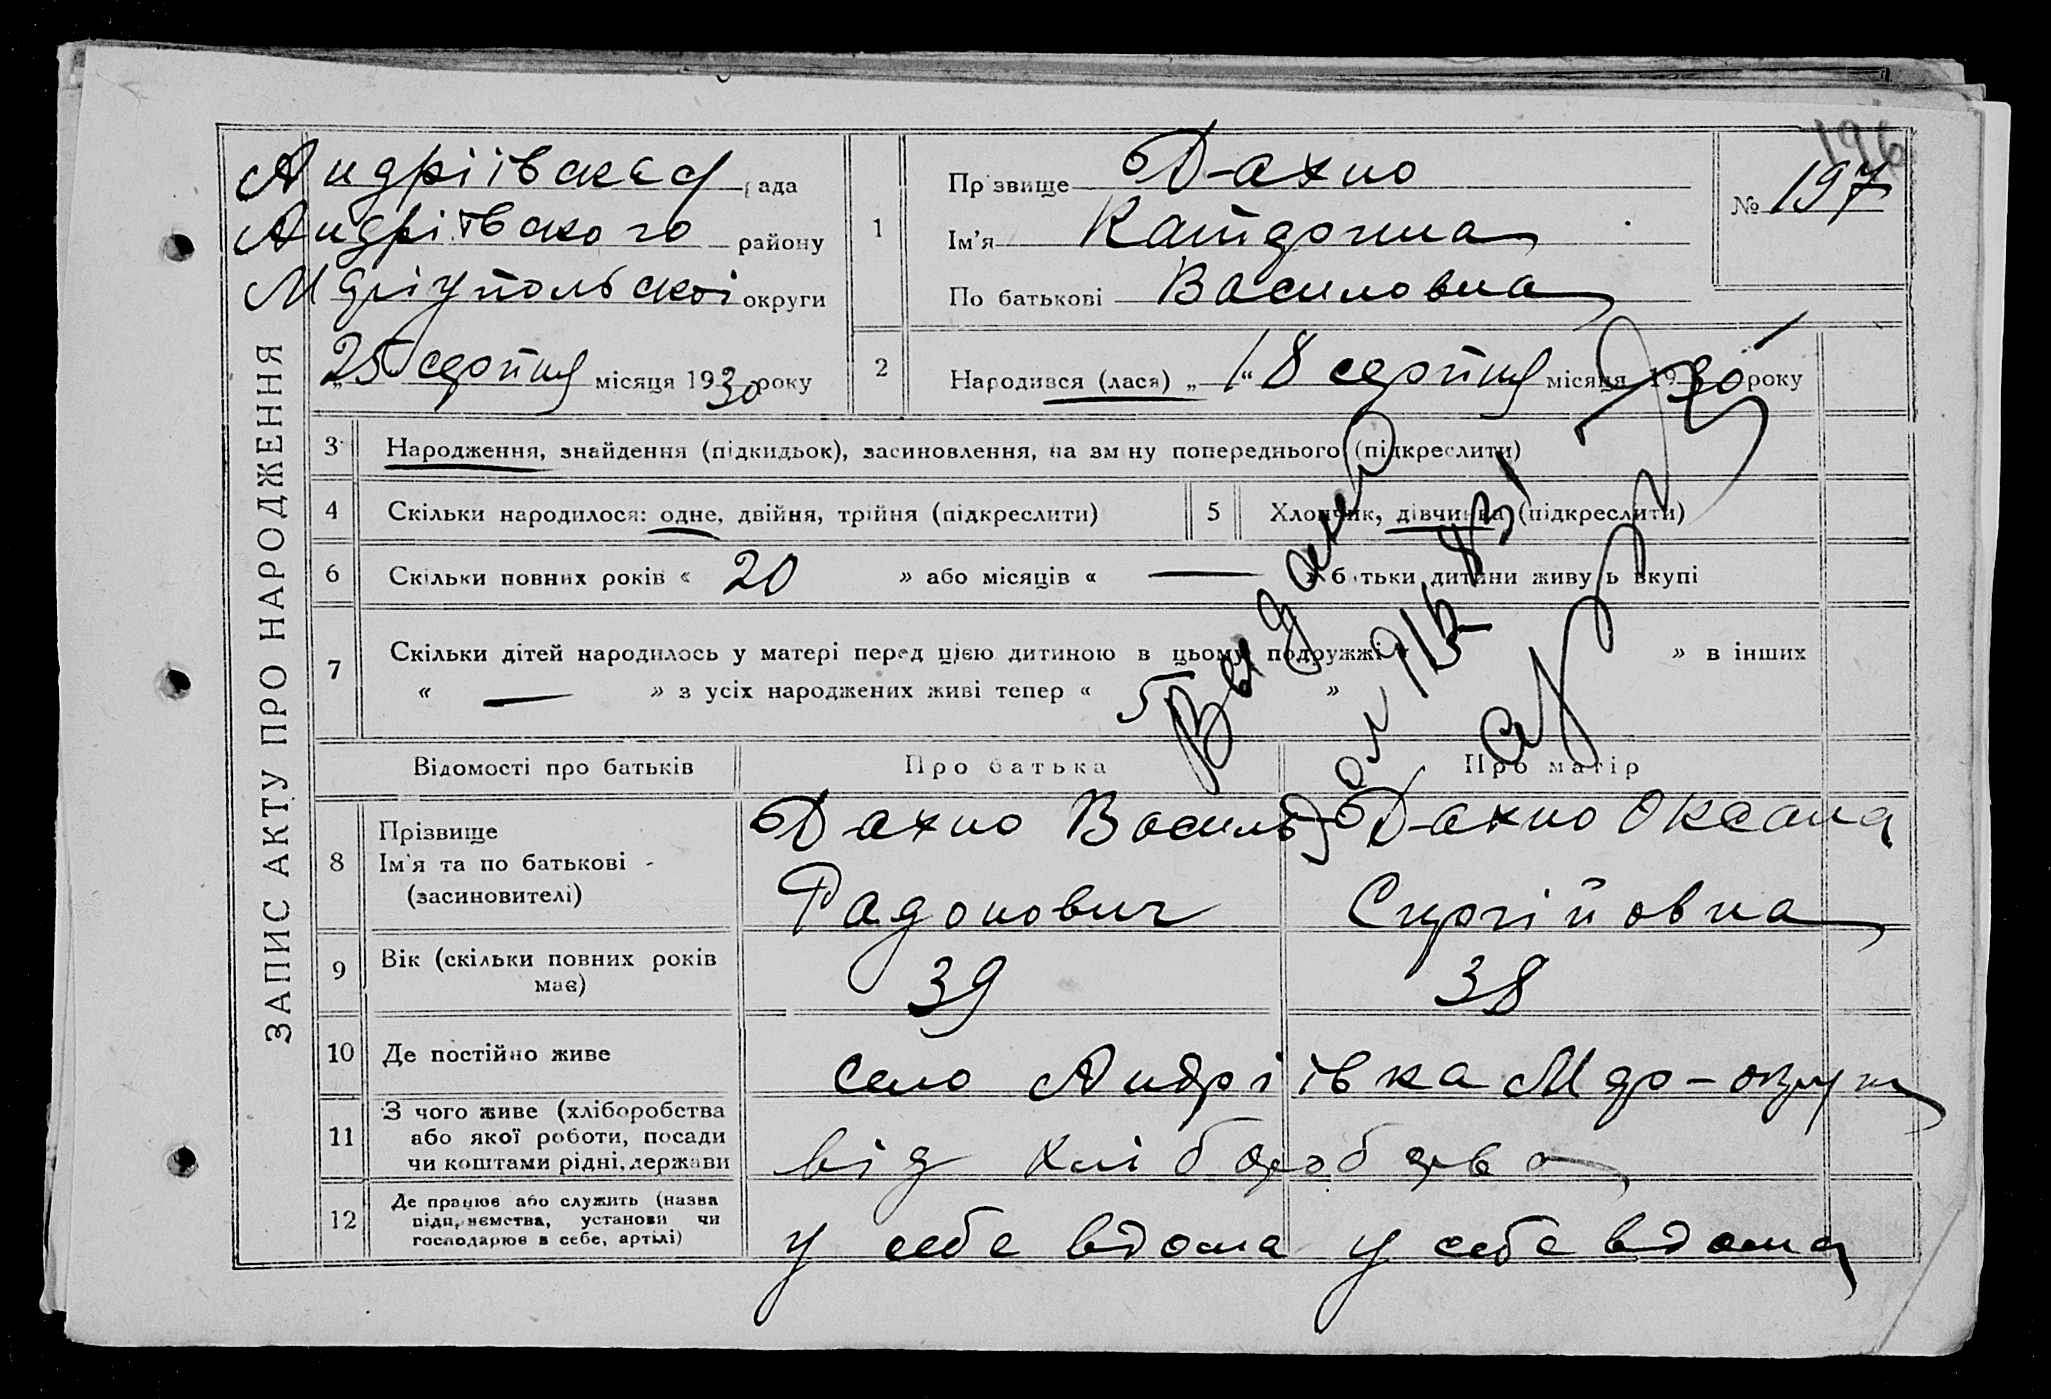 196
Андріївська рада
Андріївського району
Маріупольскої округи
„25 серпня місяця 1930 року
1
Прізвище Дахно
Ім'я Катерина
По батькові Василовна
№ 197
2
Народився (лася) „ “ 18 серпня місяця 1930 року
ЗАПИС АКТУ ПРО НАРОДЖЕННЯ
3 Народження, знайдення (підкидьок), засиновлення, на зміну попереднього (підкреслити)
4 Скільки народилося: одне, двійня, трійня (підкреслити)
5 Хлопчик, дівчинка (підкреслити)
6 Скільки повних років « 20 » або місяців « — » батьки дитини живуть вкупі
7 Скільки дітей народилось у матері перед цією дитиною в цьому подружжі « » в інших
« — » з усіх народжених живі тепер « 5 »
Відомості про батьків
Про батька
Про матір
8
Прізвище
Ім'я та по батькові
(засиновителі)
Дахно Василь
Радонович
Дахно Оксана
Сергійовна
9
Вік (скільки повних років
має)
39
38
10 Де постійно живе
село Андріївка Мар-округи
11
З чого живе (хліборобства
або якої роботи, посади
чи коштами рідні, держави
від хліборобства
12
Де працює або служить (назва
підприємства, установи чи
господарює в себе, артілі)
у себе вдома
у себе вдома